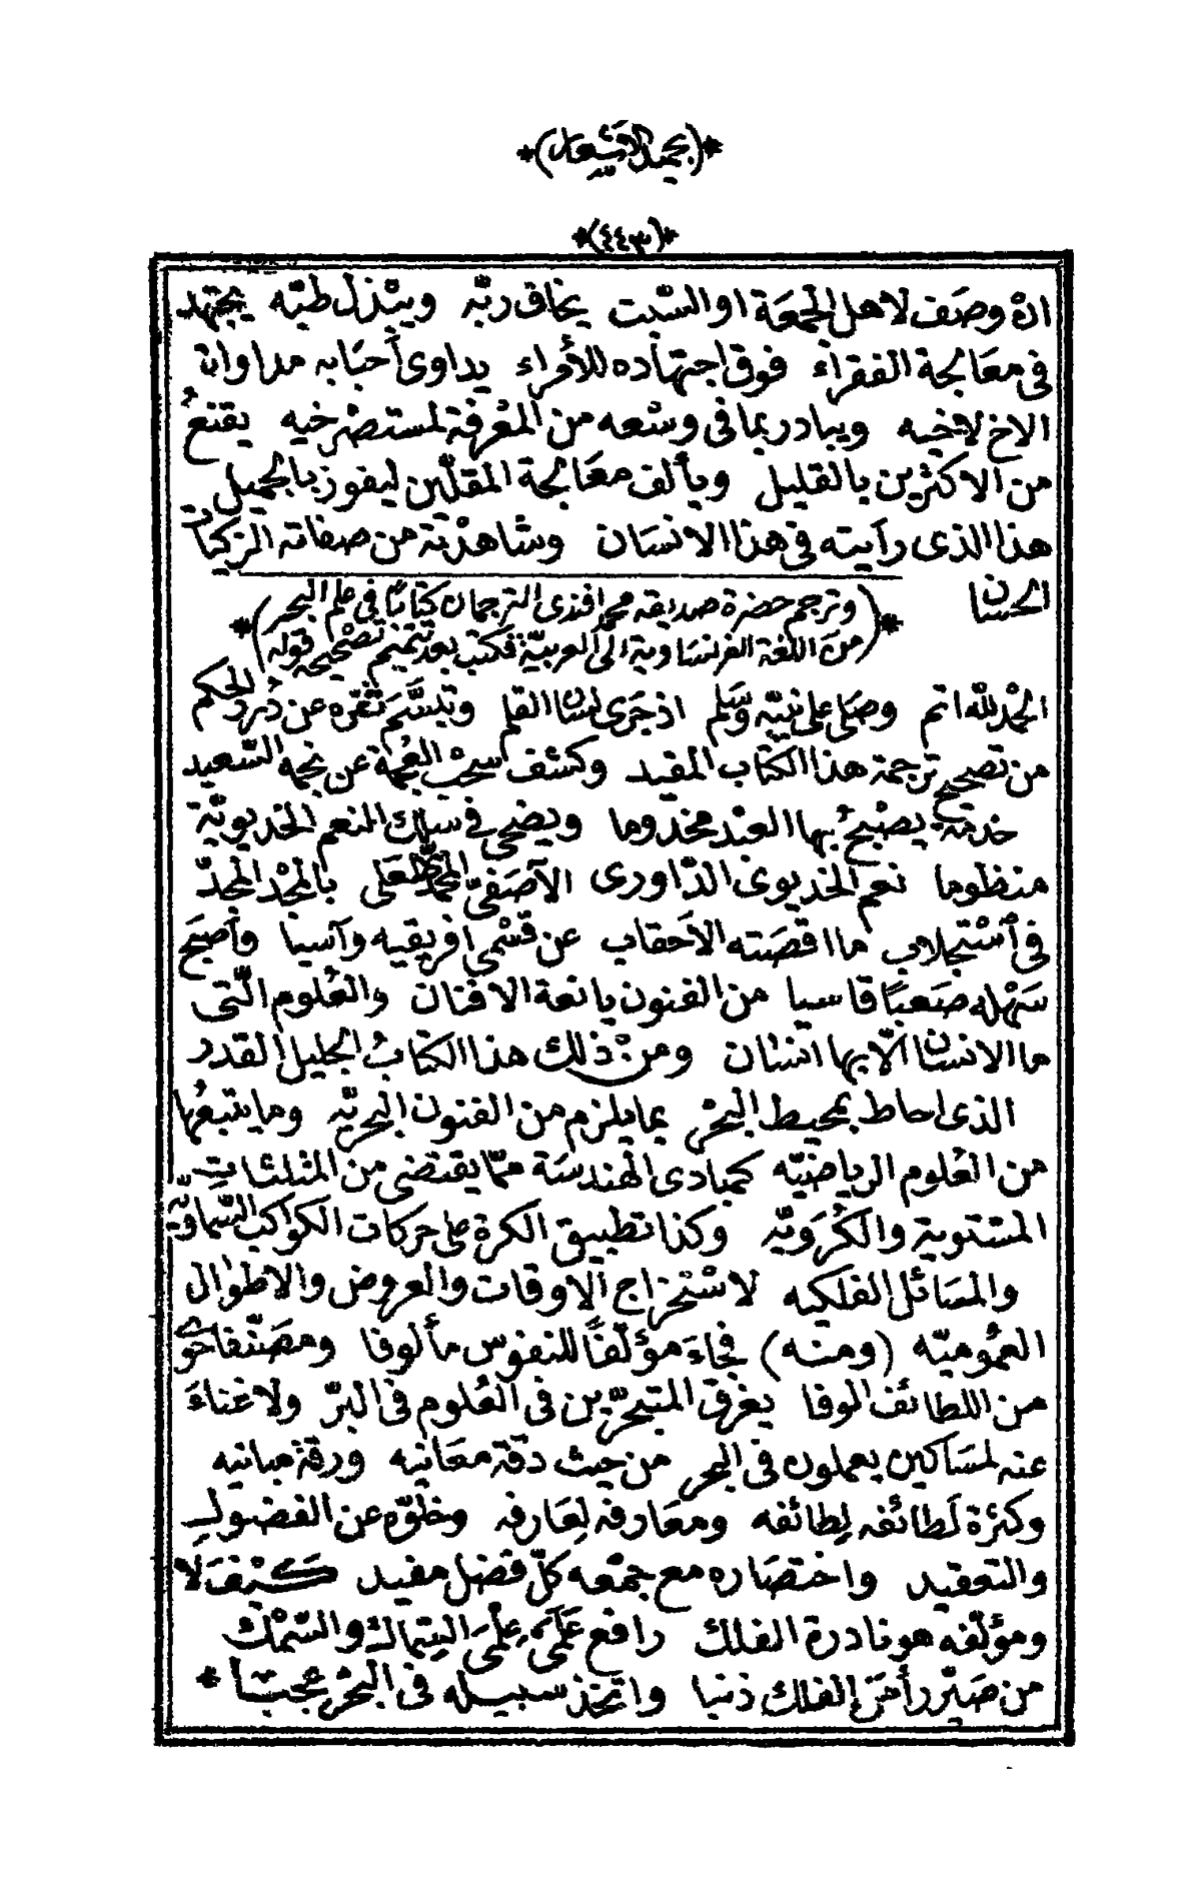 *(بجميل الاشعار)*
*(٤٤٣)*
انْ وصَف لاهل الجمعَة او السّبت يخاف ربّه ويبْذل طبّه يجتهد
فى معَالجة الفقراء فوق اجتهاده للأمراء يداوى أحبَابه مداواة
الاخ لاخيه ويبادر بما فى وسْعه من المعْرفة لمستصْرخيه يقنعُ
من الاكثرين بالقليل ويألف معَالجة المقلّين ليفوز بالجميل
هذا الذى رأيته فى هذا الانسَان وشاهدْته من صفاته الزكيات
الحسَان
*(وترجم حضرة صديقه محمد افندى الترجمان كتابًا فى علم البحر
من اللغة الفرنساوية الى العربيّة فكتب بعد تتميم تصْحيحه قوله)*
الحمْد لله اتم وصَلى على نبيّه وسَلم اذ جَرى لسَان القلم وتبسَّم ثغْره عن دُرر الحكم
من تصحيح ترجمة هذا الكتاب المفيد وكشف سحْب العُجمة عن نجمه السّعيد
خدمة يصْبحُ بها العبْد مخدوما ويضحى فى سلك النعم الخديويّة
منظوما نعم الخديوى الدّاورى الآصَفىّ المحمّد العَلى بالمجْد المجدّ
فى أسْتجلاب ما اقصَته الأحقاب عن قسْمى افريقيه وآسيا وأصبَح
سَهْله صَعبًا قاسيا من الفنون يانعة الافنان والعُلوم الّتى
ما الانسَان الّا بها انسَان ومن ذلك هذا الكتابُ الجليل القدر
الذى احاط بمحيط البحْر بما يلزم من الفنون البحريّه وما يتبعُها
من العُلوم الرياضيّه كمبادى الهندسَة ممّا يقتضى من المثلثاتِ
المستوية والكُرَويّه وكذا تطبيق الكرة على حركات الكواكب السّماويّه
والمسَائل الفلكيه لاسْتخراج الاوقات والعروض والاطوال
العمُوميّه (ومنه) فجاءَ مؤلّفًا للنفوس مألوفا ومصَنّفا حَوى
من اللطائف الوفا يغرق المتبحّرين فى العُلوم فى البرّ ولا غناءَ
عنه لمسَاكين يعملون فى البحر من حيث دقة معَانيه ورقة مبانيه
وكثرة لَطائفه لِطائفه ومعَارفه لِعَارفه وخلوّه عن الفضول
والتعقيد واختصَاره مع جمْعه كلّ فضل مفيد كيْفَ لا
ومؤلّفه هو نادرة الفلك رافع عَلَمَىْ عِلْمَىِ السّماك والسّمْك
من صَيّر رأسَ الفلك ذنبا واتخذ سبيله فى البحْر عجبَا *